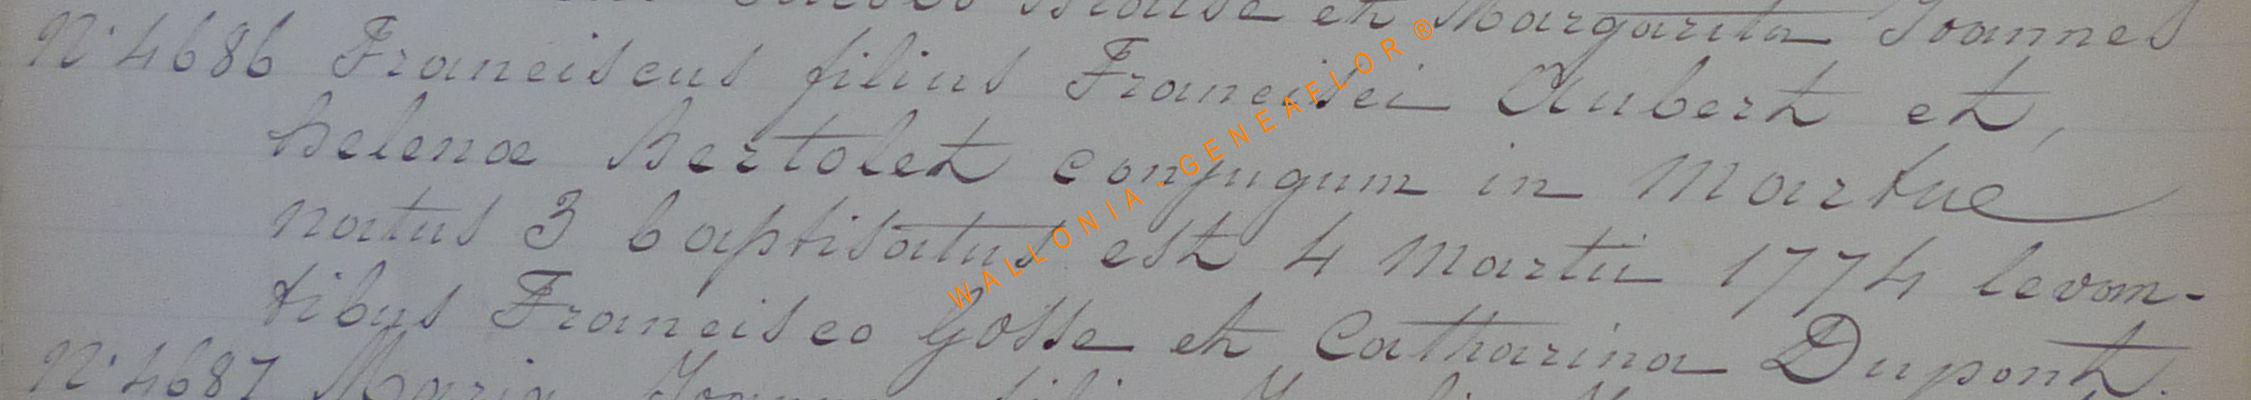 et Margarita Joannes
N° 4686 Franciscus filius Francisci Aubert et,
helenæ Bertolet conjugum in Martue
natus 3 baptisatus est 4 Martii 1774 levan-
tibus Francisco Gosse et Catharina Dupont.
N° 4687 Maria
WALLONIA-GENEAFLOR®